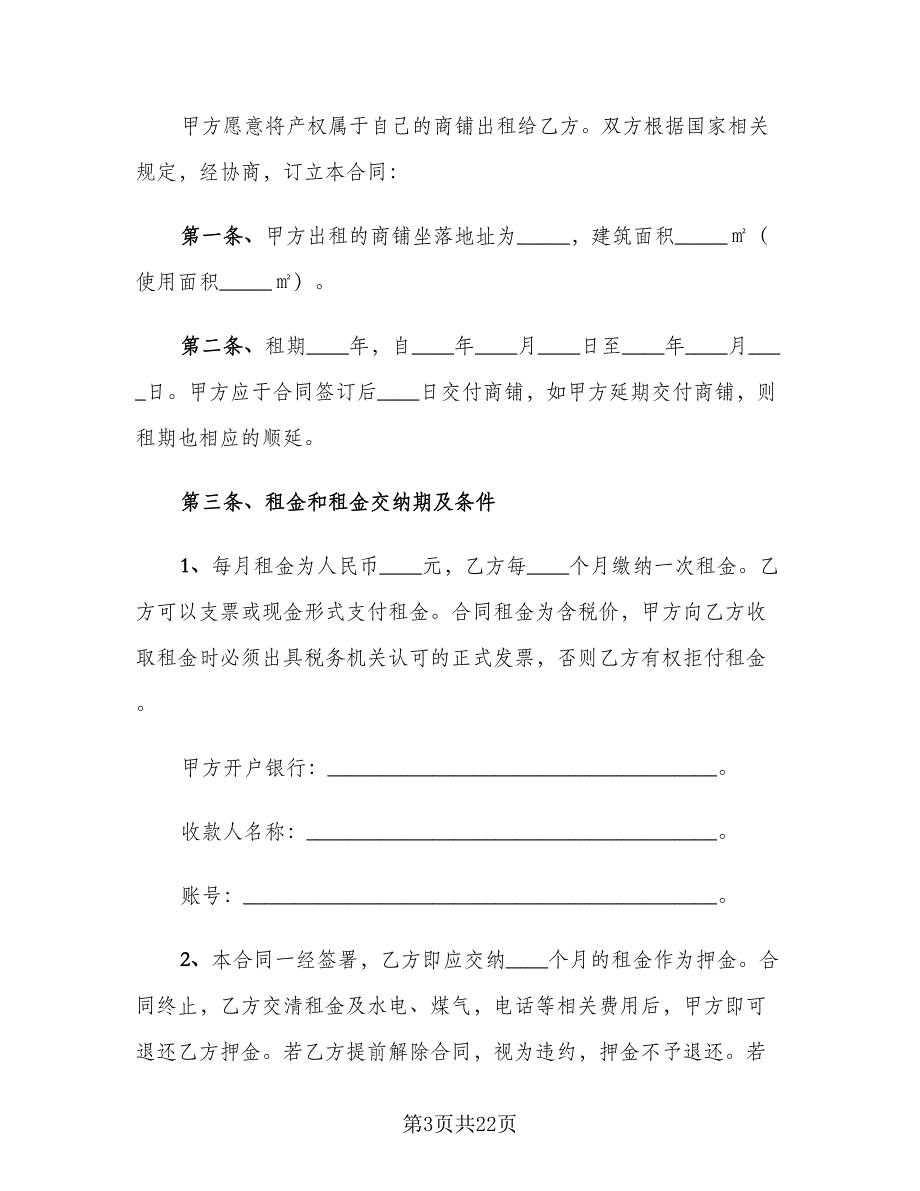 甲方愿意将产权属于自己的商铺出租给乙方。双方根据国家相关
规定，经协商，订立本合同：
第一条、甲方出租的商铺坐落地址为_____，建筑面积_____㎡（
使用面积_____㎡）。
第二条、租期____年，自____年____月____日至____年____月___
_日。甲方应于合同签订后____日交付商铺，如甲方延期交付商铺，则
租期也相应的顺延。
第三条、租金和租金交纳期及条件
1、每月租金为人民币____元，乙方每____个月缴纳一次租金。乙
方可以支票或现金形式支付租金。合同租金为含税价，甲方向乙方收
取租金时必须出具税务机关认可的正式发票，否则乙方有权拒付租金
。
甲方开户银行：_____________________________________。
收款人名称：_______________________________________。
账号：_____________________________________________。
2、本合同一经签署，乙方即应交纳____个月的租金作为押金。合
同终止，乙方交清租金及水电、煤气，电话等相关费用后，甲方即可
退还乙方押金。若乙方提前解除合同，视为违约，押金不予退还。若
第3页共22页